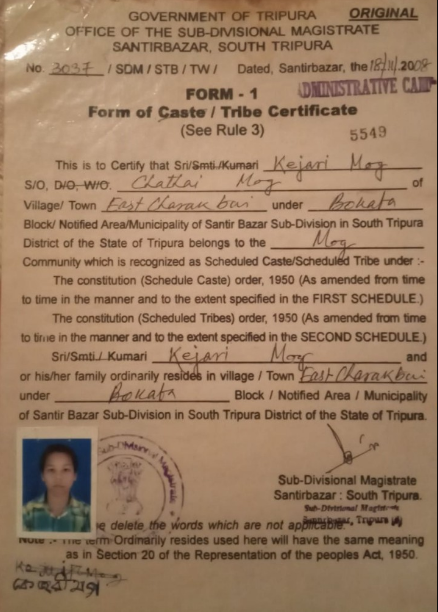 GOVERNMENT OF TRIPURA ORIGINAL
OFFICE OF THE SUB-DIVISIONAL MAGISTRATE
SANTIRBAZAR, SOUTH TRIPURA
No. 3037 / SDM / STB / TW / Dated, Santirbazar, the 18/11/2008
ADMINISTRATIVE CAMP
FORM - 1
Form of Caste / Tribe Certificate
(See Rule 3)
5549
This is to Certify that Sri/Smti./Kumari Kejari Mog
S/O, D/O, W/O. Chathai Mog of
Village/ Town East Charakbai under Bokafa
Block/ Notified Area/Municipality of Santir Bazar Sub-Division in South Tripura
District of the State of Tripura belongs to the Mog
Community which is recognized as Scheduled Caste/Scheduled Tribe under :-
The constitution (Schedule Caste) order, 1950 (As amended from time
to time in the manner and to the extent specified in the FIRST SCHEDULE.)
The constitution (Scheduled Tribes) order, 1950 (As amended from time
to time in the manner and to the extent specified in the SECOND SCHEDULE.)
Sri/Smti./ Kumari Kejari Mog and
or his/her family ordinarily resides in village / Town East Charakbai
under Bokafa Block / Notified Area / Municipality
of Santir Bazar Sub-Division in South Tripura District of the State of Tripura.
Sub-Divisional Magistrate
Santirbazar : South Tripura.
Sub-Divisional Magistrate
Santirbazar, Tripura (S)
delete the words which are not applicable.
Note :- The term Ordinarily resides used here will have the same meaning
as in Section 20 of the Representation of the peoples Act, 1950.